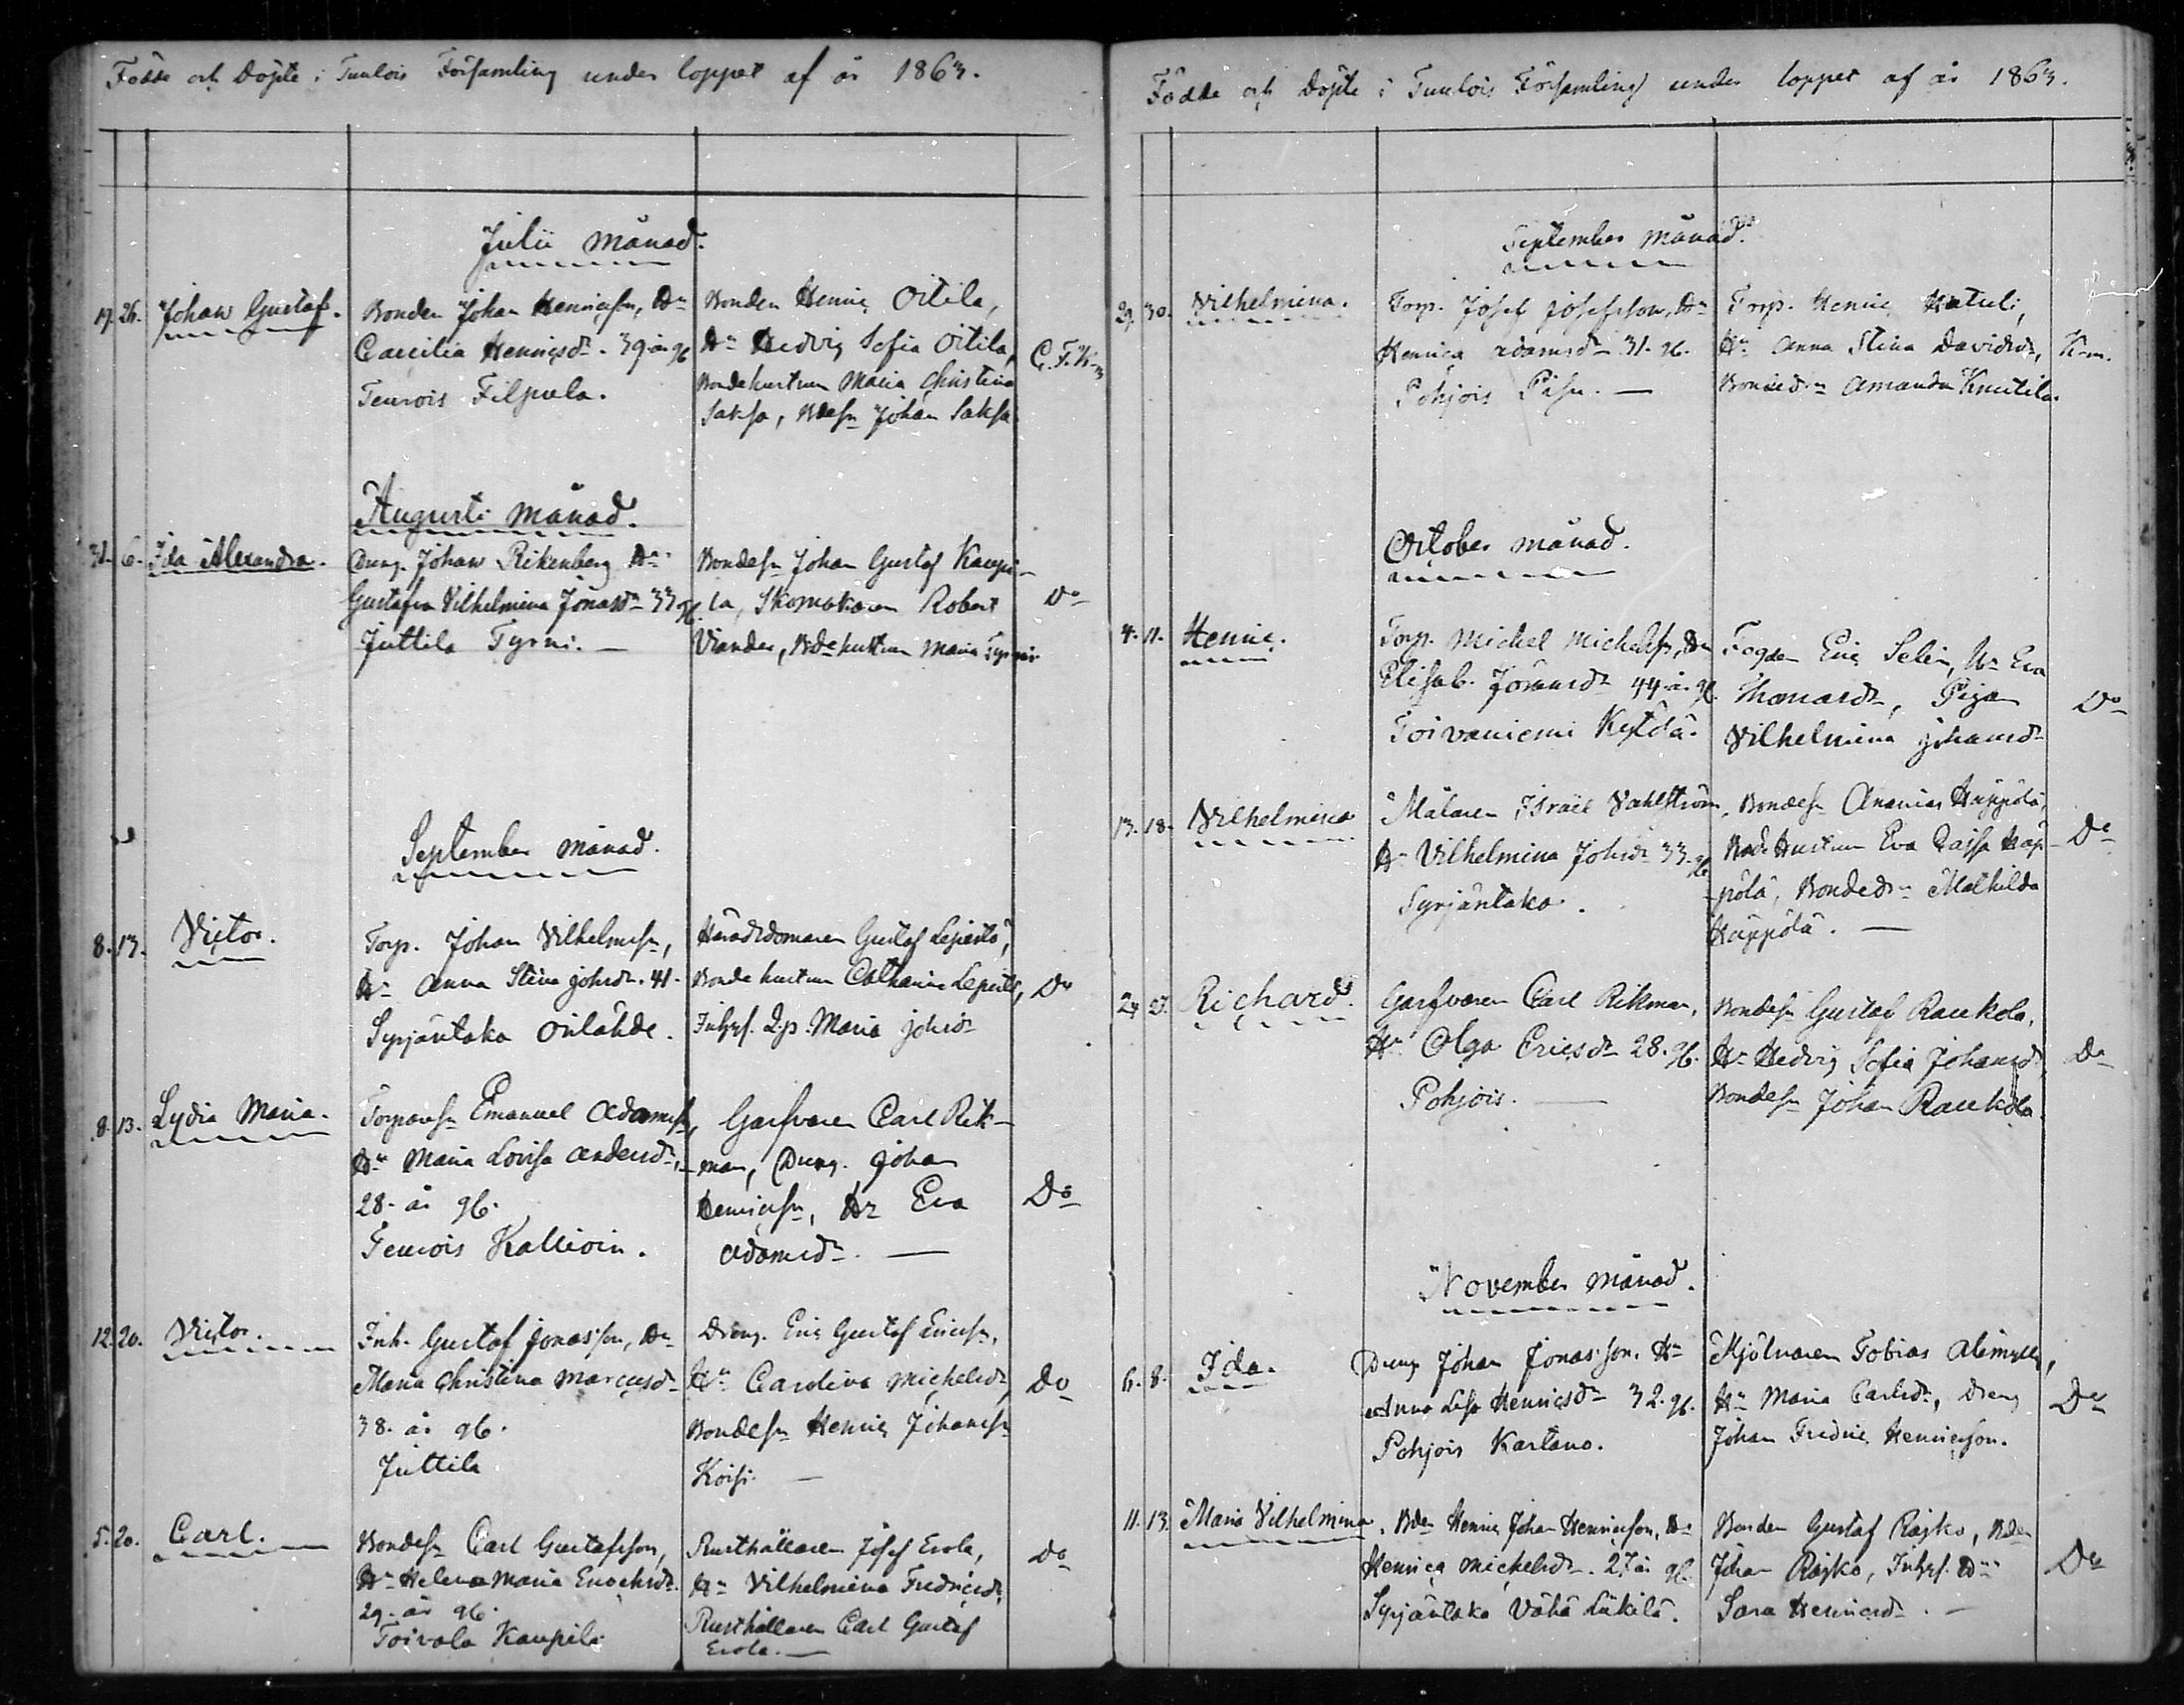 Födde och Döpte i Tuulois Församling under loppet af år 1863.
Julii månad.
19. 26. Johan Gustaf.
Bonden Johan Henricsson, Hu
Caecilia Henricsdr. 39 år gl
Teurois Filpula.
Bonden Henric Oitila,
Hu Hedvig Sofia Oitila,
Bondehustrun Maria Christina
Saksa, Bdesn Johan Saksa
Augusti månad.
31. 6. Ida Alexandra.
Dreng. Johan Rikenberg Hu
Gustafva Vilhelmina Jonasdr 33 gl.
Juttila Tyrni. —
Bondesn Johan Gustaf Kaupi-
la, Skomakaren Robert
Viander, Bdehustrun Maria Tyrni
Do
September månad.
8. 13. Victor.
Torp. Johan Vilhelmsn,
Hu Anna Stina Johsdr. 41.
Syrjäntaka Oilähde.
Häradsdomaren Gustaf Lepistö,
Bondehustrun Catharina Lepistö,
Inhys. Q.p. Maria Johsdr
Do
8. 13. Lydia Maria.
Torparesn Emanuel Adamsn,
Hu Maria Lovisa Andersdr,
28. år gl.
Teurois Kallioin.
Garfvaren Carl Rik-
man, Dreng. Johan
Henricsn, Hu Eva
Adamsdr. —
Do
12. 20. Victor.
Inh. Gustaf Jonasson, Hu
Maria Christina Marcusdr
38. år gl.
Juttila
Dreng. Eric Gustaf Ericsn,
Hu Carolina Michelsdr,
Bondesn Henric Johansn
Koisi. —
Do
5. 20. Carl.
Bondesn Carl Gustafsson,
Hu Helena Maria Enochsdr.
29. år gl.
Toivola Kaupila
Rusthållaren Josef Erola,
Hu Vilhelmina Fredricsdr,
Rusthållaren Carl Gustaf
Erola. —
Do
Födde och Döpte i Tuulois Församling under loppet af år 1863.
September månad.
29. 30. Vilhelmina.
Torp. Josef Josefsson, Hu
Henrica Adamsdr 31. gl.
Pohjois Pisu. —
Torp. Henric Hatuli,
Hu Anna Stina Davidsdr,
Bondedr Amanda Knutila.
K-m.
October månad.
4. 11. Henric.
Torp. Michel Michelsn, Hu
Elisab. Göransdr 44 år gl.
Toivaniemi Kytölä.
Fogden Eric Selin, Hu Eva
Thomasdr, Pigan
Vilhelmina Johansdr
Do
13. 18. Vilhelmina
Målaren Israël Vahlström,
Hu Vilhelmina Johsdr 33. gl
Syrjäntaka.
Bondesn Ananias Häppölä,
Bdehustrun Eva Caisa Häp-
pölä, Bondedr Mathilda
Häppölä. —
Do
24. 25. Richard.
Garfvaren Carl Rikman,
Hu Olga Ericsdr 28. gl.
Pohjois. —
Bondesn Gustaf Raukola,
Hu Hedvig Sofia Johansdr
Bondesn Johan Raukola.
Do
November månad.
6. 8. Ida.
Dreng Johan Jonasson, Hu
Anna Lisa Henricsdr 32. gl.
Pohjois Kartano.
Mjölnaren Tobias Alimylly,
Hu Maria Carlsdr, Dreng
Johan Fredric Henricsson.
Do
11. 13. Maria Vilhelmina.
Bden Henric Johan Henricsson, Hu
Henrica Michelsdr. 27 år gl.
Syrjäntaka Vähä Liikilä.
Bonden Gustaf Rajko, Bden
Johan Rajko, Inhys.
Sara Henricsdr. —
Do